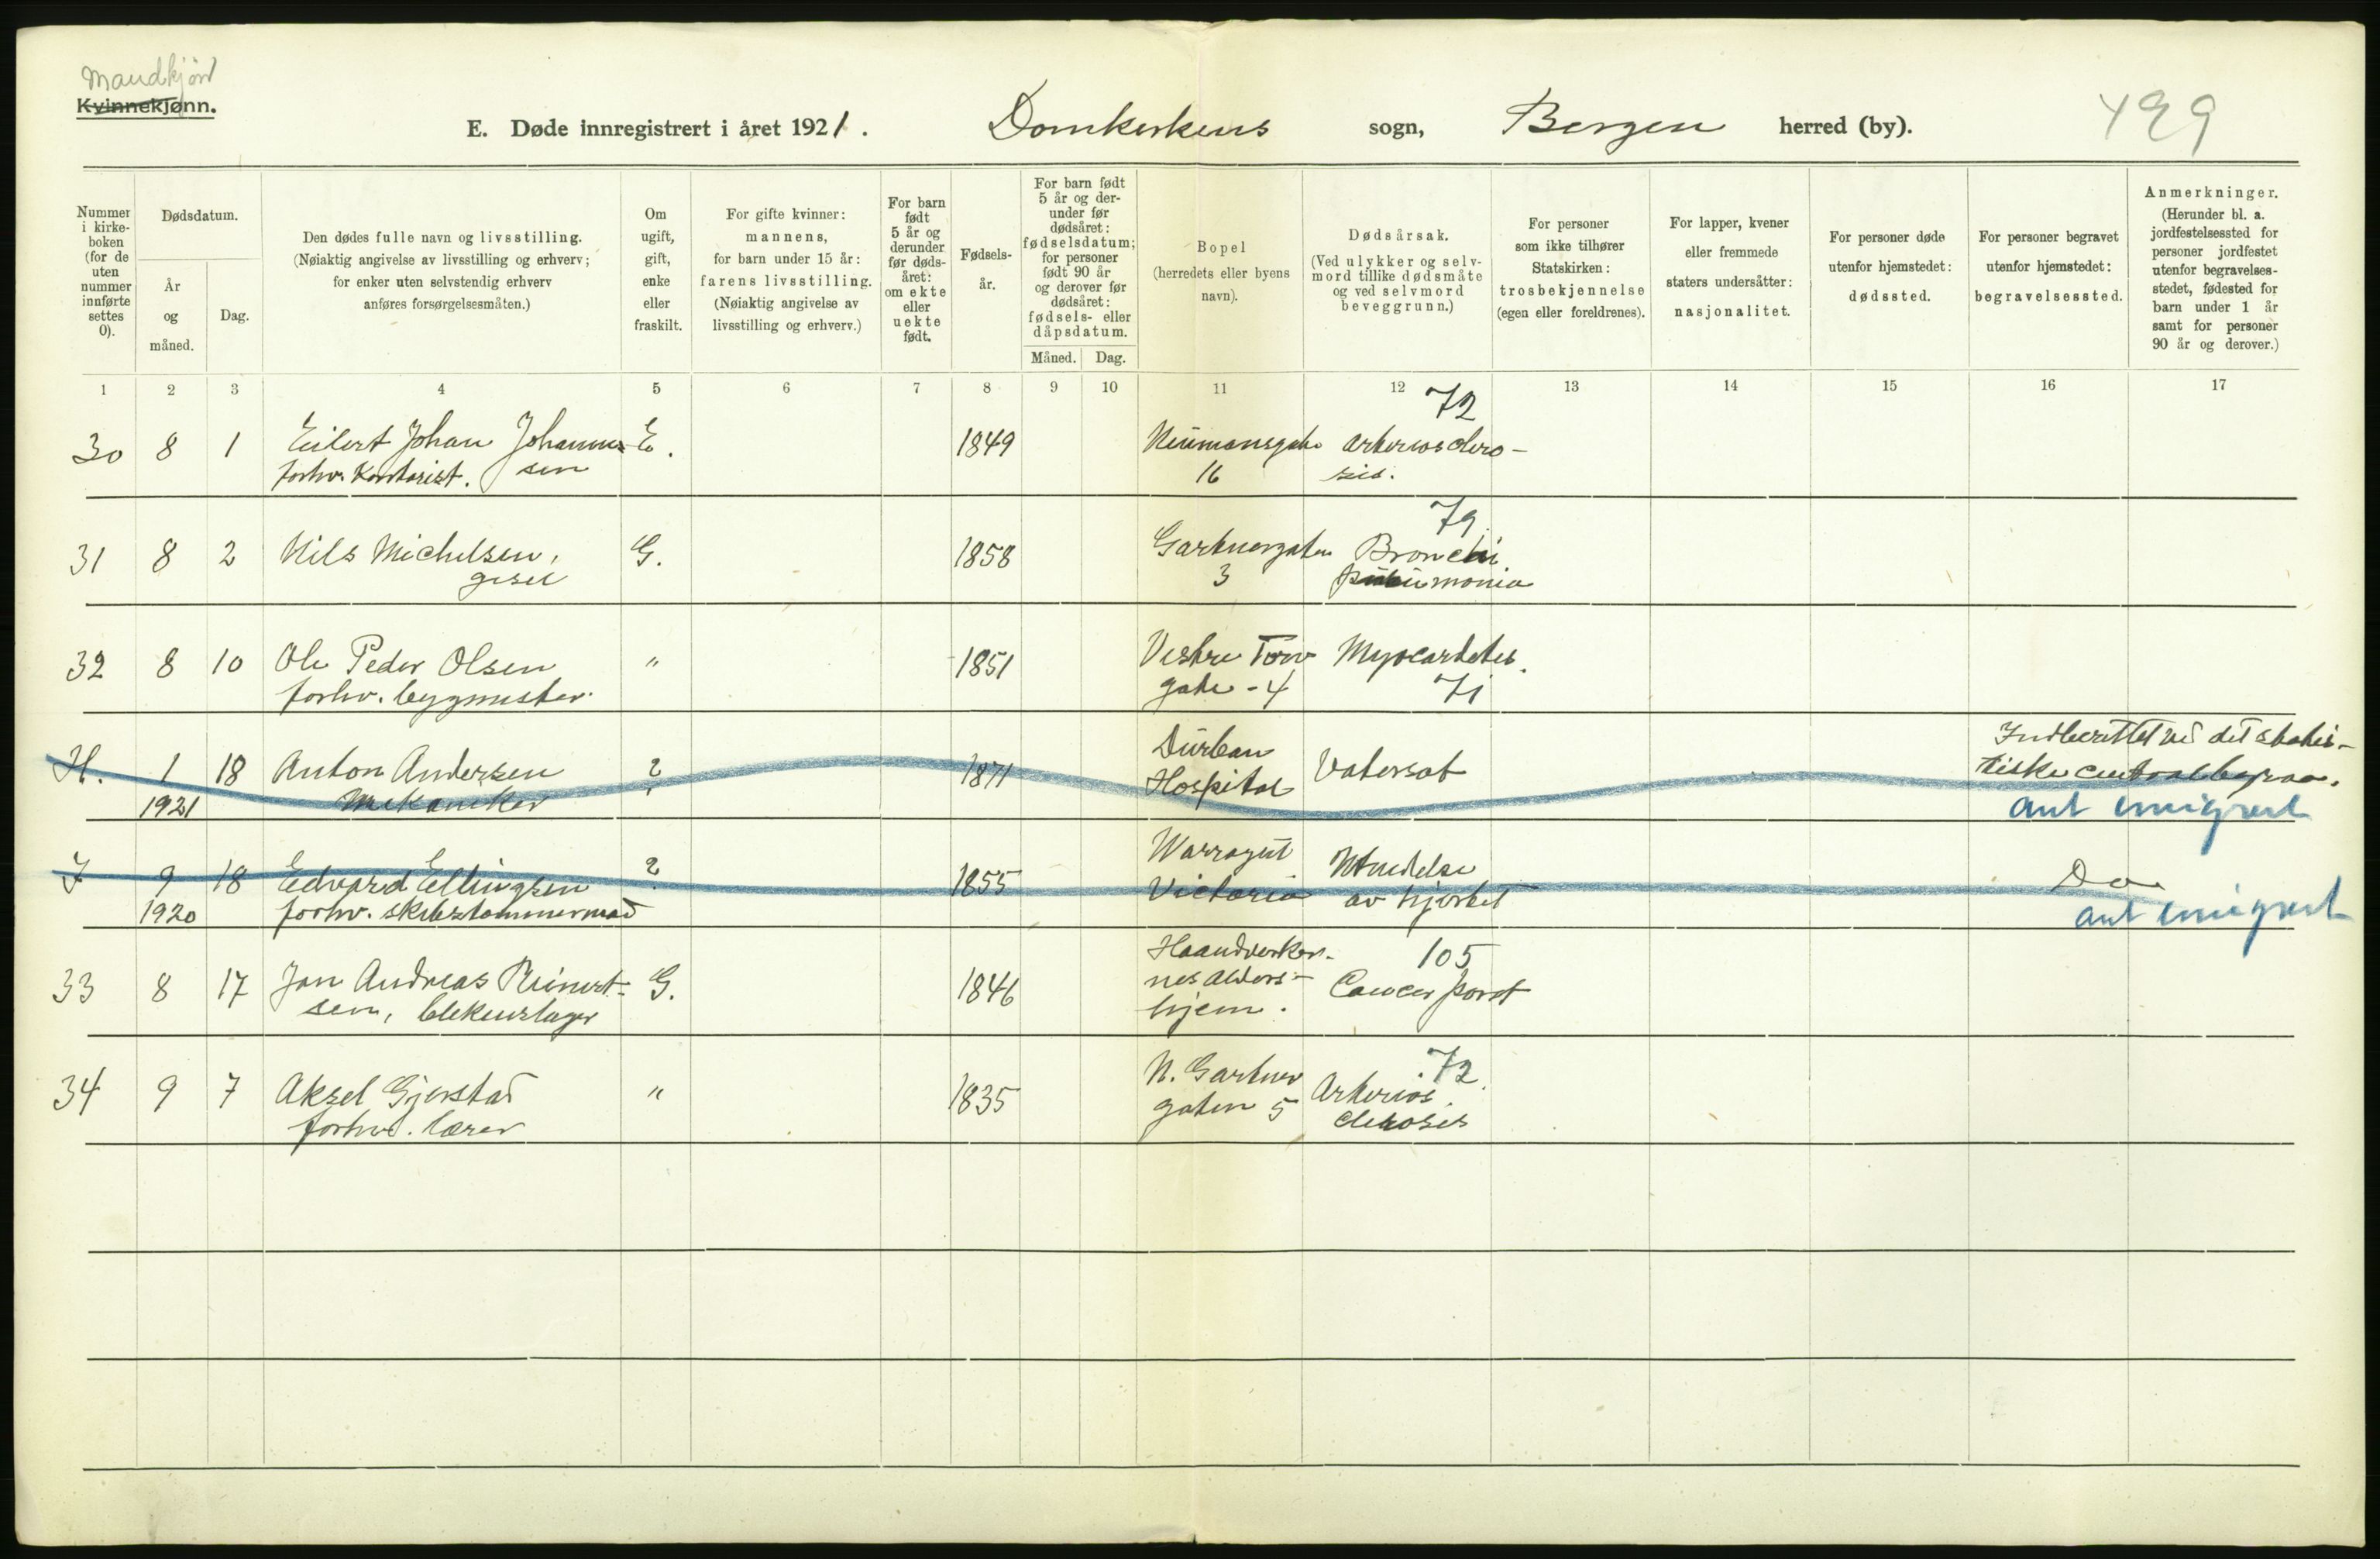 Mandkjøn
Kvinnekjønn.
E. Døde innregistrert i året 1921. Domkirkens sogn, Bergen herred (by). 499
Nummer i kirke-boken (for de uten nummer innførte settes 0).
Dødsdatum.
År og måned.
Dag.
Den dødes fulle navn og livsstilling.
(Nøiaktig angivelse av livsstilling og erhverv;
for enker uten selvstendig erhverv
anføres forsørgelsesmåten.)
Om ugift, gift, enke eller fraskilt.
For gifte kvinner:
mannens,
for barn under 15 år:
farens livsstilling.
(Nøiaktig angivelse av
livsstilling og erhverv.)
For barn født 5 år og derunder før døds-året: om ekte eller uekte født.
Fødsels-år.
For barn født
5 år og der-
under før
dødsåret:
fødselsdatum;
for personer
født 90 år
og derover før
dødsåret:
fødsels- eller
dåpsdatum.
Måned. Dag.
Bopel
(herredets eller byens
navn).
Dødsårsak.
(Ved ulykker og selv-
mord tillike dødsmåte
og ved selvmord
beveggrunn.)
For personer
som ikke tilhører
Statskirken:
trosbekjennelse
(egen eller foreldrenes).
For lapper, kvener
eller fremmede
staters undersåtter:
nasjonalitet.
For personer døde
utenfor hjemstedet:
dødssted.
For personer begravet
utenfor hjemstedet:
begravelsessted.
Anmerkninger.
(Herunder bl. a.
jordfestelsessted for
personer jordfestet
utenfor begravelses-
stedet, fødested for
barn under 1 år
samt for personer
90 år og derover.)
1 2 3 4 5 6 7 8 9 10 11 12 13 14 15 16 17
72
30 8 1 Eilert Johan Johannes- E. 1849 Neumansgate Arterioschlero-
forhv. Kontorist. sen 16 sis.
79
31 8 2 Nils Michelsen, G. 1858 Gartnergaten Bronchi
3 pneumonia
32 8 10 Ole Peder Olsen " 1851 Vestre Torv Myocarditis.
forhv. bygmester. gate - 4 71
H. 1 18 Anton Andersen ? 1871 Durban Vatersot Indberettet ved det statis-
1921 Mekaniker Hospital tiske centralbyraa.
ant emigrert
I 9 18 Edvard Ellingsen ? 1855 Warragul Utvidelse Do
1920 forhv. skibstømmermad Victoria av hjertet ant emigrert
33 8 17 Jan Andreas Reinert- G. 1846 Haandverker- 105
sen, blikenslager nes Alders- Cancer
hjem.
34 9 7 Aksel Gjerstad " 1835 N. Gartner 72
forhv. lærer gaten 5 Arterios.
clerosis